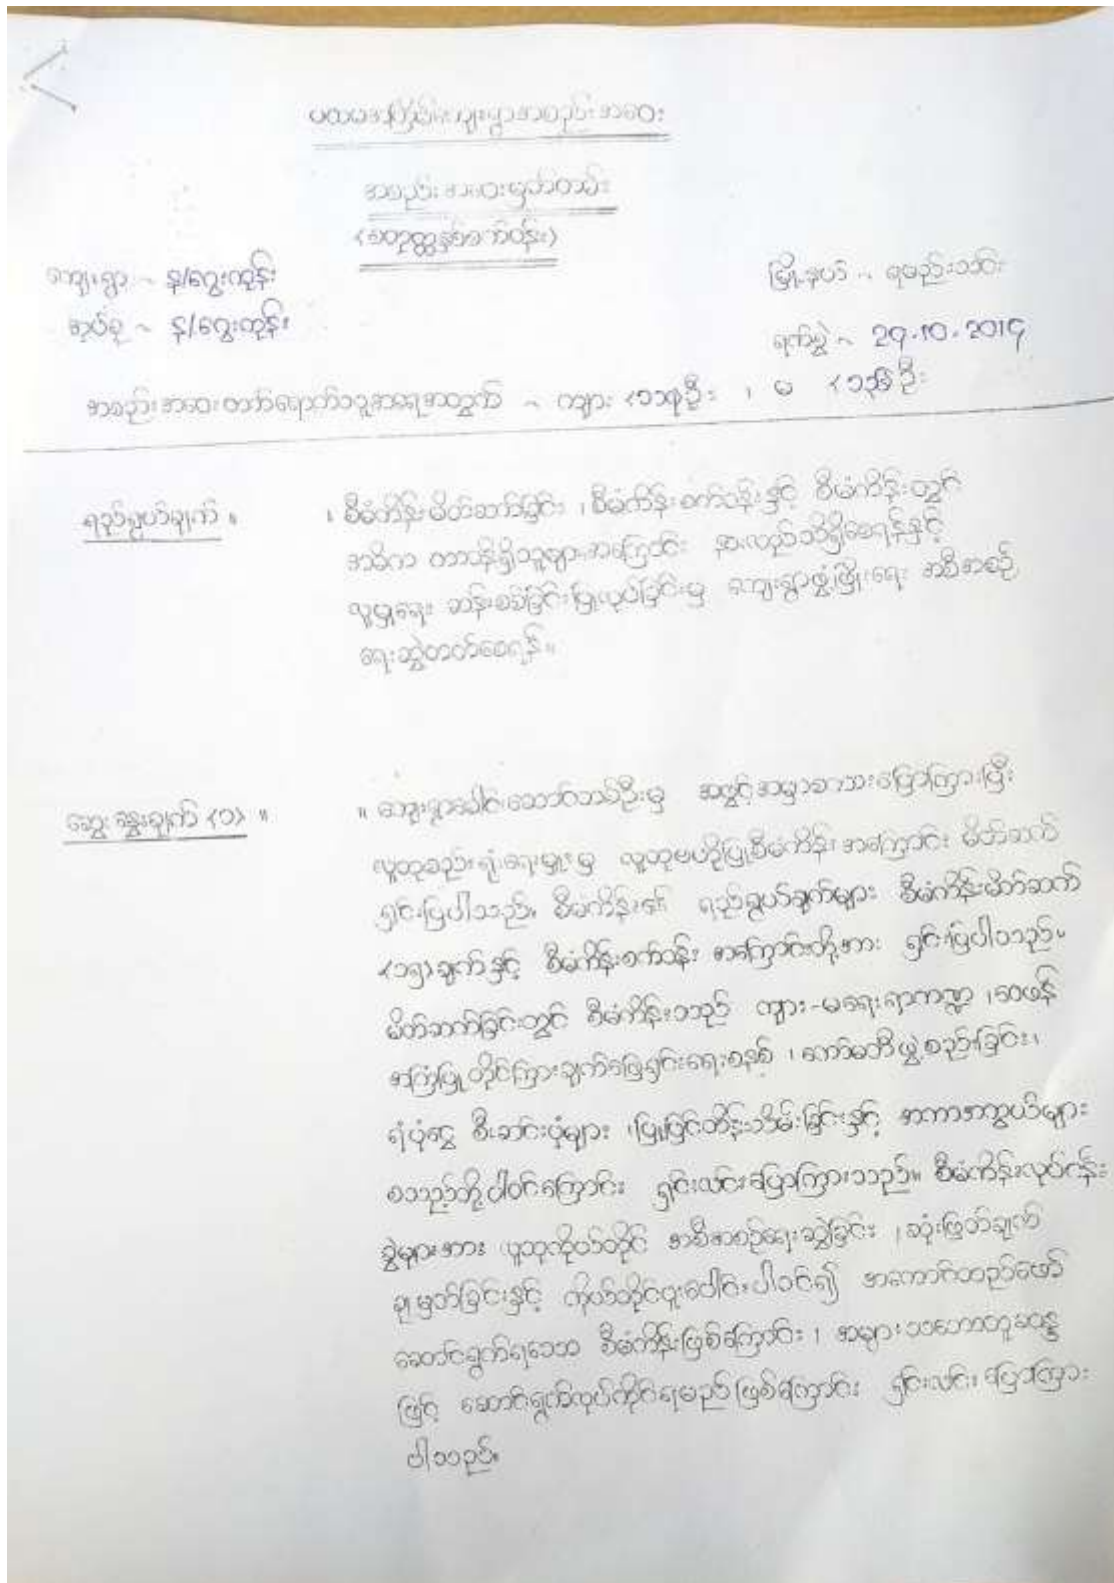 ပထမအကြိမ်ကျေးရွာအစည်းအဝေး
အစည်းအဝေးမှတ်တမ်း
<စတုတ္ထနှစ်စက်ဝန်း>
ကျေးရွာ ~ န/ငွေးကုန်း
မြို့နယ် ~ ရမည်းသင်း
အုပ်စု ~ န/ငွေးကုန်း
ရက်စွဲ ~ 29.10.2019
အစည်းအဝေးတက်ရောက်သူအရေအတွက် ~ ကျား ဦး ၊ မ ဦး
ရည်ရွယ်ချက် ။ ၊ စီမံကိန်းမိတ်ဆက်ခြင်း ၊ စီမံကိန်းစက်ဝန်းနှင့် စီမံကိန်းတွင်
အဓိက တာဝန်ရှိသူများအကြောင်း နားလည်သိရှိစေရန်နှင့်
လူမှုရေး ဆန်းစစ်ခြင်းပြုလုပ်ခြင်းမှ ကျေးရွာဖွံ့ဖြိုးရေး အစီအစဉ်
ရေးဆွဲတတ်စေရန်။
ဆွေးနွေးချက် <၁> ။ ။ ကျေးရွာခေါင်းဆောင်တစ်ဦးမှ အဖွင့်အမှာစကားပြောကြားပြီး
လူထုစည်းရုံးရေးမှူးမှ လူထုဗဟိုပြုစီမံကိန်းအကြောင်း မိတ်ဆက်
ရှင်းပြပါသည်။ စီမံကိန်း၏ ရည်ရွယ်ချက်များ စီမံကိန်းမိတ်ဆက်
<၁၅>ချက်နှင့် စီမံကိန်းစက်ဝန်း အကြောင်းတို့အား ရှင်းပြပါသည်။
မိတ်ဆက်ခြင်းတွင် စီမံကိန်းသည် ကျား-မရေးရာကဏ္ဍ ၊ဝေဖန်
အကြံပြု တိုင်ကြားချက်ဖြေရှင်းရေးစနစ် ၊ ကော်မတီဖွဲ့စည်းခြင်း၊
ရံပုံငွေ စီးဆင်းပုံများ ၊ပြုပြင်ထိန်းသိမ်းခြင်းနှင့် အကာအကွယ်များ
စသည်တို့ပါဝင်ကြောင်း ရှင်းလင်းပြောကြားသည်။ စီမံကိန်းလုပ်ငန်း
ခွဲများအား လူထုကိုယ်တိုင် အစီအစဉ်ရေးဆွဲခြင်း ၊ဆုံးဖြတ်ချက်
ချမှတ်ခြင်းနှင့် ကိုယ်တိုင်ပူးပေါင်းပါဝင်၍ အကောင်အထည်ဖော်
ဆောင်ရွက်ရသော စီမံကိန်းဖြစ်ကြောင်း ၊ အများသဘောတူဆန္ဒ
ဖြင့် ဆောင်ရွက်လုပ်ကိုင်ရမည်ဖြစ်ကြောင်း ရှင်းလင်းပြောကြား
ပါသည်။